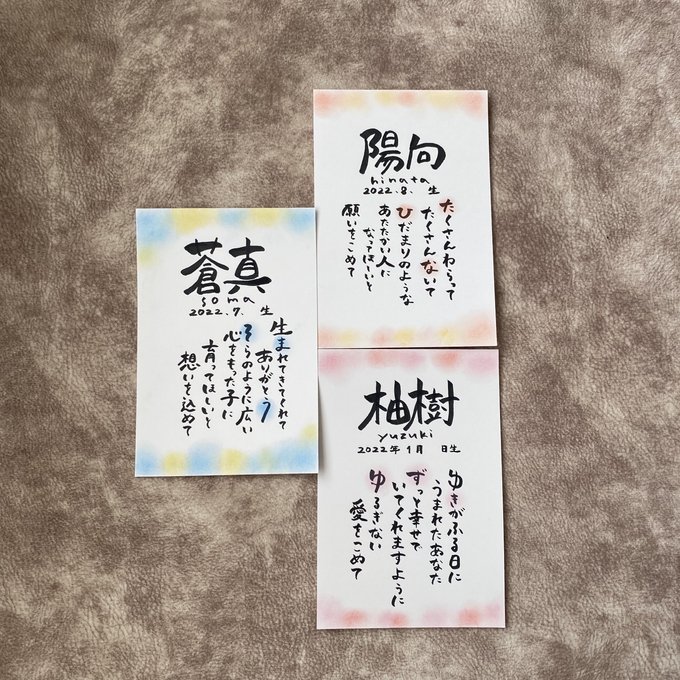 蒼真
soma
2022.7. 生
生まれてきてくれて
ありがとう
そらのように広い
心をもった子に
育ってほしいと
想いを込めて
陽向
hinata
2022.8. 生
たくさんわらって
たくさんないて
ひだまりのような
あたたかい人に
なってほしいと
願いをこめて
柚樹
yuzuki
2022年1月 日生
ゆきがふる日に
うまれたあなた
ずっと幸せで
いてくれますように
ゆるぎない
愛をこめて